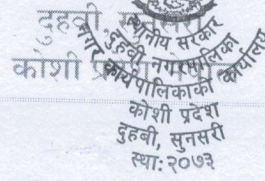 दुहवी,
कोशी
स्थानीय सरकार
दुहवी नगरपालिका
नगर कार्यपालिकाको कार्यालय
कोशी प्रदेश
दुहबी, सुनसरी
स्था: २०७३